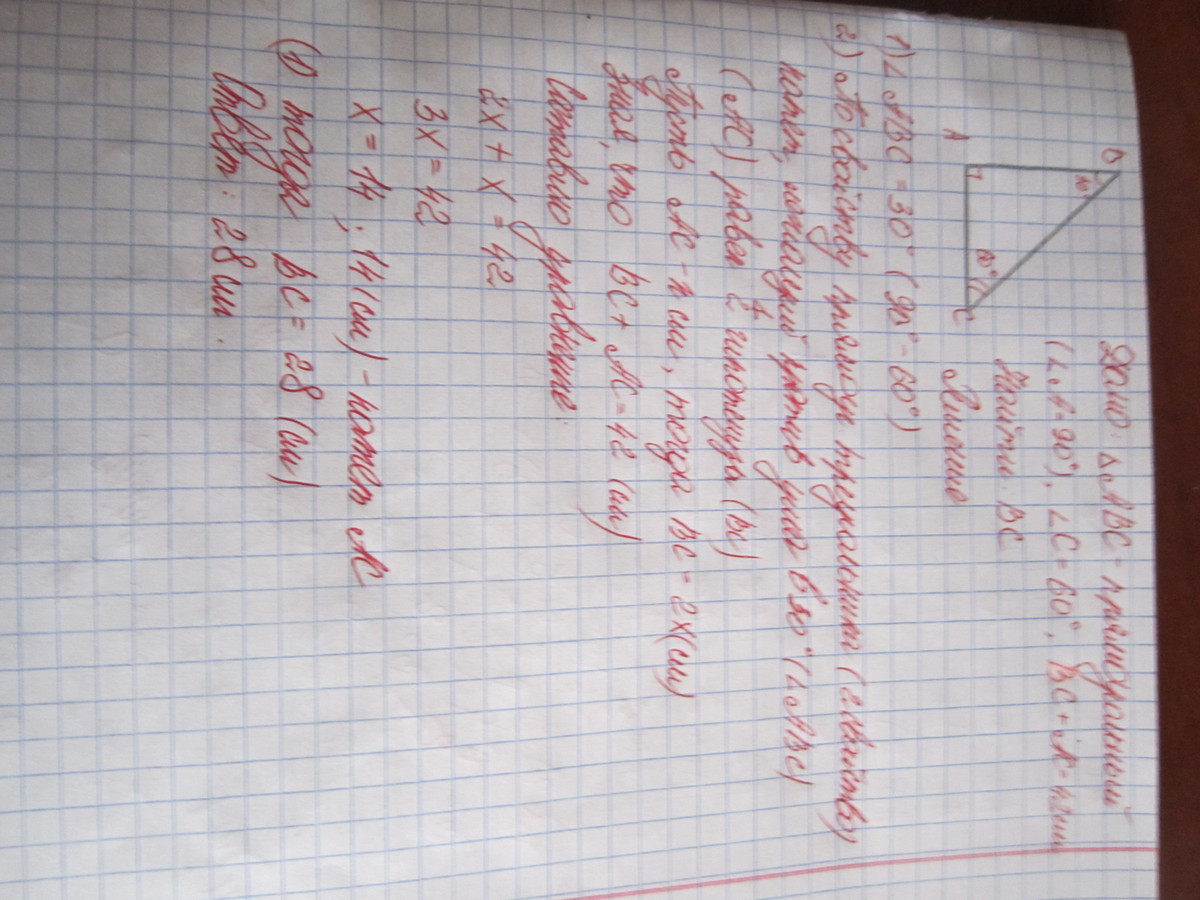 B
30°
60°
A
C
Дано: △ABC - прямоугольный
(∠A=90°), ∠C=60°, BC+AC=42см
Найти: BC
Решение
1) ∠ABC=30° (90°-60°)
2) По свойству прямоуг. треугольника (2 свойству)
катет, лежащий против угла в 30° (∠ABC)
(AC) равен 1/2 гипотенузы (BC)
Пусть AC - x см, тогда BC=2x(см)
Зная, что BC+AC=42 (см)
Составлю уравнение:
2x+x=42
3x=42
x=14; 14(см) - катет AC
тогда BC=28 (см)
Ответ: 28см.